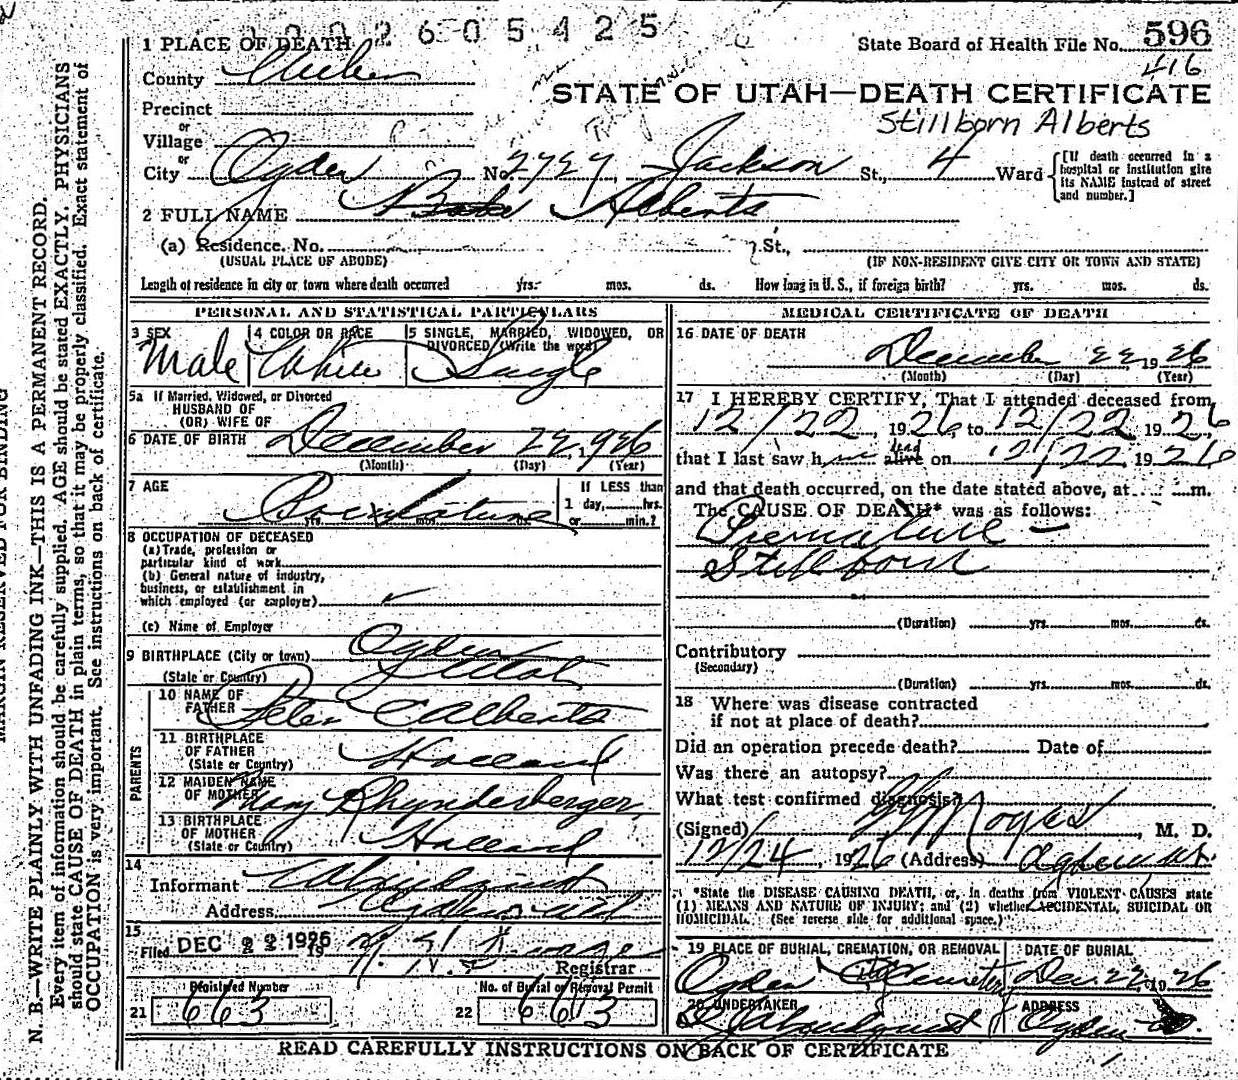 2605425
1 PLACE OF DEATH
State Board of Health File No. 596
416
County Weber
STATE OF UTAH—DEATH CERTIFICATE
Precinct
Stillborn Alberts
or
Village
or
City Ogden No. 2727 Jackson St., 4 Ward
[If death occurred in a hospital or institution give its NAME instead of street and number.]
2 FULL NAME Alberts
(a) Residence. No. St.,
(USUAL PLACE OF ABODE) (IF NON-RESIDENT GIVE CITY OR TOWN AND STATE)
Length of residence in city or town where death occurred yrs. mos. ds. How long in U. S., if foreign birth? yrs. mos. ds.
PERSONAL AND STATISTICAL PARTICULARS
3 SEX Male
4 COLOR OR RACE White
5 SINGLE, MARRIED, WIDOWED, OR DIVORCED (Write the word) Single
5a If Married, Widowed, or Divorced
HUSBAND OF
(OR) WIFE OF
6 DATE OF BIRTH December 22, 1926
(Month) (Day) (Year)
7 AGE
yrs. mos.
If LESS than
1 day, hrs.
or min.?
8 OCCUPATION OF DECEASED
(a) Trade, profession or
particular kind of work
(b) General nature of industry,
business, or establishment in
which employed (or employer)
(c) Name of Employer
9 BIRTHPLACE (City or town) Ogden
(State or Country) Utah
PARENTS
10 NAME OF FATHER Peter Alberts
11 BIRTHPLACE OF FATHER
(State or Country) Holland
12 MAIDEN NAME OF MOTHER Mary Rhyndesberger
13 BIRTHPLACE OF MOTHER
(State or Country) Holland
14
Informant
Address
15
Filed DEC 22 1926 19
Registrar
Registered Number
21 663
No. of Burial or Removal Permit
22 663
MEDICAL CERTIFICATE OF DEATH
16 DATE OF DEATH
December 22 1926
(Month) (Day) (Year)
17 I HEREBY CERTIFY, That I attended deceased from
12/22, 1926, to 12/22 1926,
that I last saw h dead alive on 12/22 1926
and that death occurred, on the date stated above, at m.
The CAUSE OF DEATH* was as follows:
Premature —
Stillborn
(Duration) yrs. mos. ds.
Contributory
(Secondary)
(Duration) yrs. mos. ds.
18 Where was disease contracted
if not at place of death?
Did an operation precede death? Date of
Was there an autopsy?
What test confirmed diagnosis?
(Signed) Noyes, M. D.
12/24, 1926 (Address) Ogden
*State the DISEASE CAUSING DEATH, or, in deaths from VIOLENT CAUSES state
(1) MEANS AND NATURE OF INJURY; and (2) whether ACCIDENTAL, SUICIDAL OR
HOMICIDAL. (See reverse side for additional space.)
19 PLACE OF BURIAL, CREMATION, OR REMOVAL
Ogden City Cemetery
DATE OF BURIAL
Dec. 22, 1926
20 UNDERTAKER
ADDRESS
Ogden
READ CAREFULLY INSTRUCTIONS ON BACK OF CERTIFICATE
MARGIN RESERVED FOR BINDING
N. B.—WRITE PLAINLY WITH UNFADING INK—THIS IS A PERMANENT RECORD.
Every item of information should be carefully supplied. AGE should be stated EXACTLY. PHYSICIANS
should state CAUSE OF DEATH in plain terms, so that it may be properly classified. Exact statement of
OCCUPATION is very important. See instructions on back of certificate.